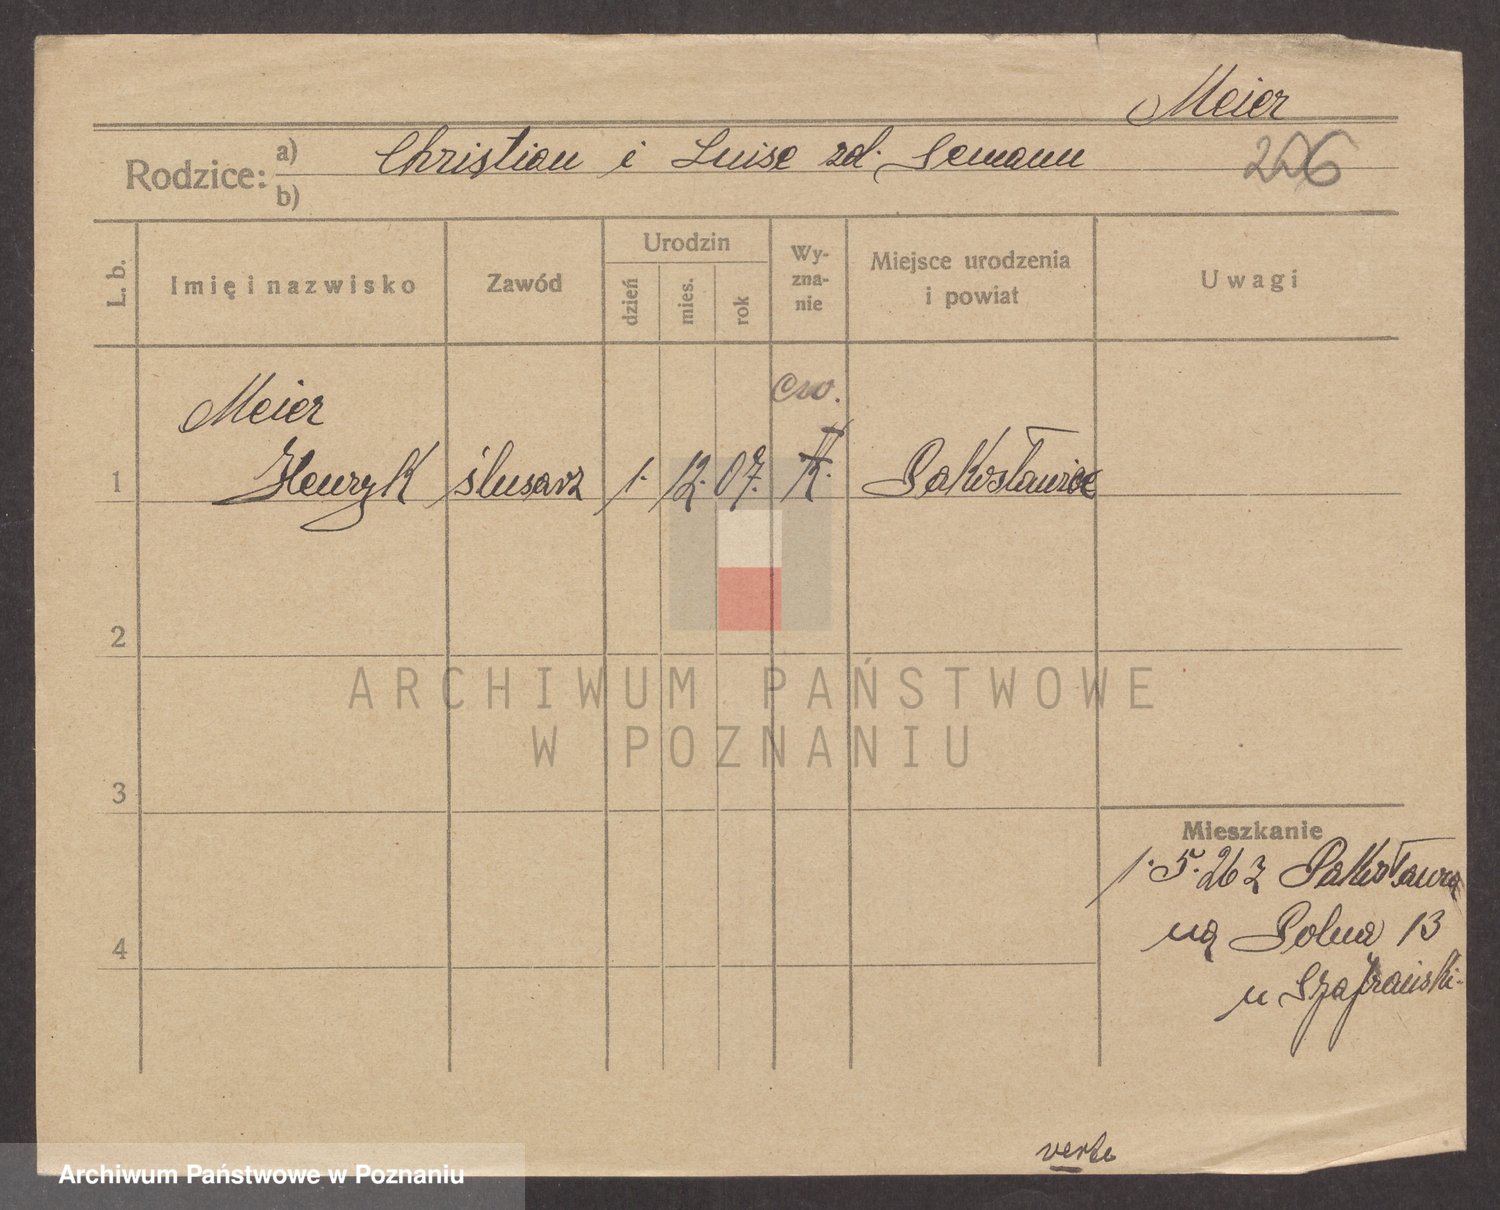 Meier
Rodzice: a) Christian i Luise zd. Semann
b)
L. b.
Imię i nazwisko
Zawód
Urodzin
dzień
mies.
rok
Wy-
zna-
nie
Miejsce urodzenia
i powiat
Uwagi
ew.
Meier
1 Henryk ślusarz 1. 12. 07. K. Pakosławice
2
3
4
Mieszkanie
1. 5. 26 z Pakosława
na Polna 13
u Szafrański
verte
ARCHIWUM PAŃSTWOWE
W POZNANIU
Archiwum Państwowe w Poznaniu